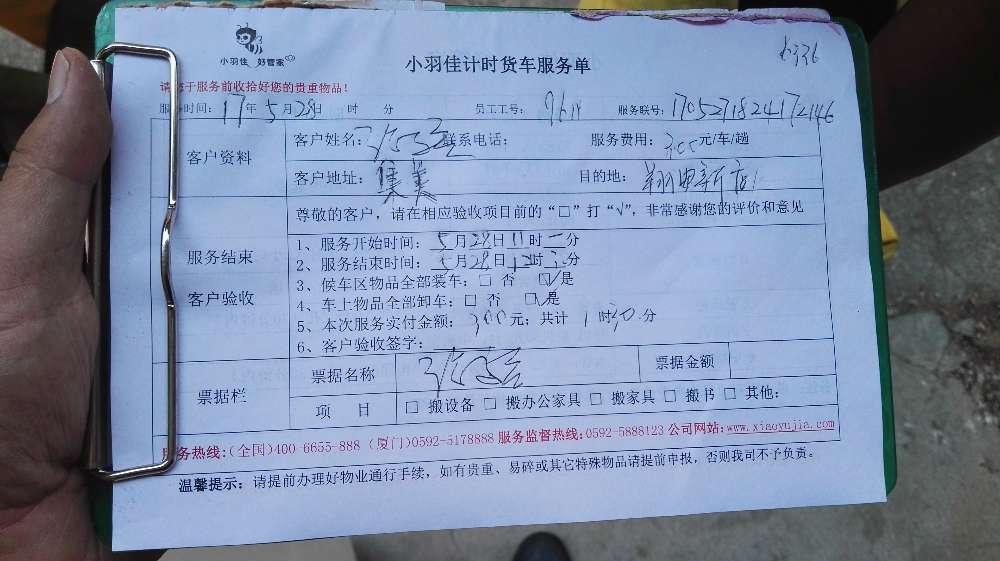 小羽佳 好管家
小羽佳计时货车服务单
请您于服务前收拾好您的贵重物品！
服务时间：17年5月28日 时 分 员工工号： 服务联号：
客户资料
客户姓名： 联系电话： 服务费用：300元/车/趟
客户地址：集美 目的地：
服务结束
客户验收
尊敬的客户，请在相应验收项目前的“□”打“√”，非常感谢您的评价和意见
1、服务开始时间：5月28日11时 分
2、服务结束时间：5月28日12时 分
3、候车区物品全部装车：□ 否 ☑是
4、车上物品全部卸车：□ 否 ☑是
5、本次服务实付金额：300元；共计 1时30分
6、客户验收签字：
票据栏
票据名称 票据金额
项 目 □ 搬设备 □ 搬办公家具 □ 搬家具 □ 搬书 □ 其他：
服务热线：(全国)400-6655-888 (厦门)0592-5178888 服务监督热线：0592-5888123 公司网站：www.xiaoyujia.com
温馨提示：请提前办理好物业通行手续，如有贵重、易碎或其它特殊物品请提前申报，否则我司不予负责。